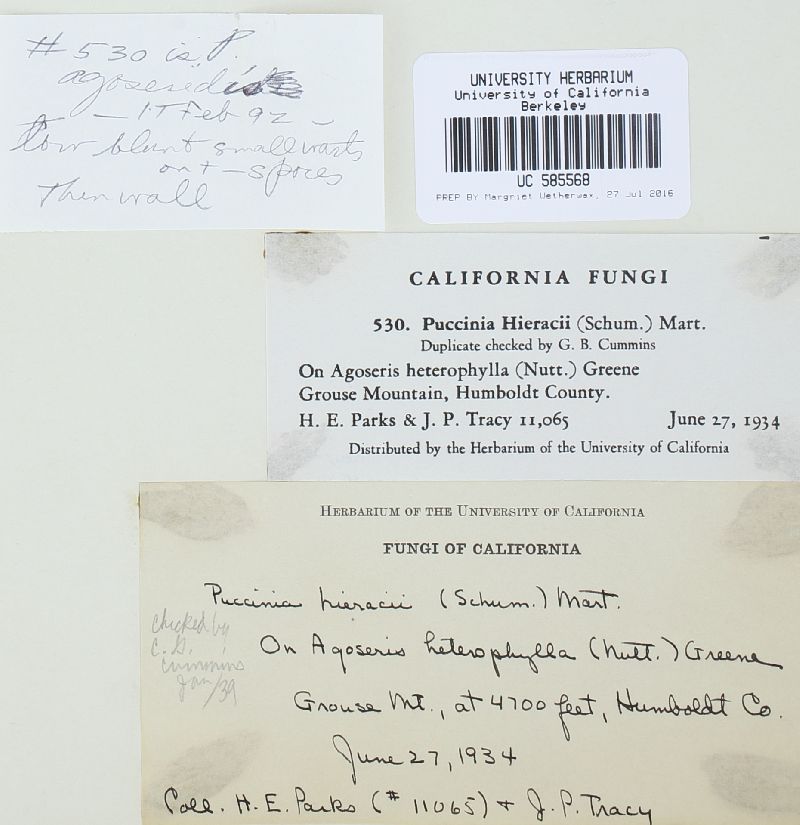 # 530 is P.
agoseridis
— 17 Feb 92 —
low blunt small warts
on t — spores
Then wall
UNIVERSITY HERBARIUM
University of California
Berkeley
UC 585568
PREP BY Margriet Wetherwax, 27 Jul 2016
CALIFORNIA FUNGI
530. Puccinia Hieracii (Schum.) Mart.
Duplicate checked by G. B. Cummins
On Agoseris heterophylla (Nutt.) Greene
Grouse Mountain, Humboldt County.
H. E. Parks & J. P. Tracy 11,065 June 27, 1934
Distributed by the Herbarium of the University of California
HERBARIUM OF THE UNIVERSITY OF CALIFORNIA
FUNGI OF CALIFORNIA
Puccinia hieracii (Schum.) Mart.
On Agoseris heterophylla (Nutt.) Greene
Grouse Mt., at 4700 feet, Humboldt Co.
June 27, 1934
Coll. H. E. Parks (# 11065) + J. P. Tracy
checked by
C. G.
Cummins
Jan/39